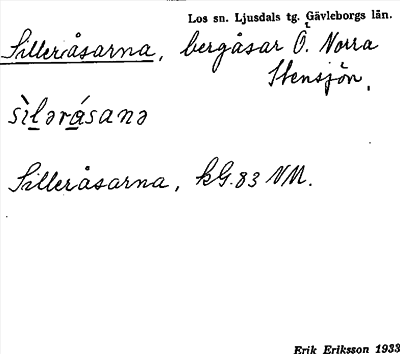 Los sn. Ljusdals tg. Gävleborgs län.
Silleråsarna, bergåsar Ö. t Norra
Stensjön.
sìləråsanə
Silleråsarna, kG. 83 NM.
Erik Eriksson 1933